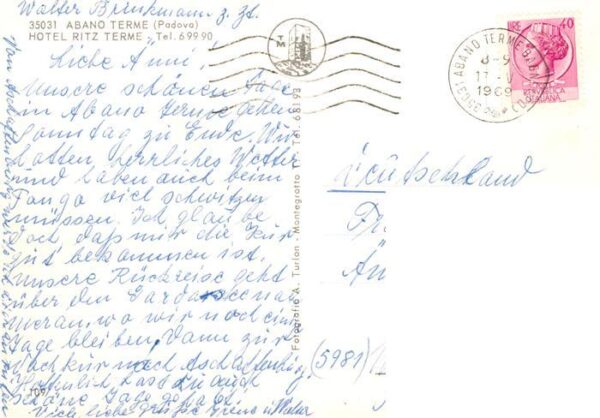 Walter Brinkmann z. Zt.
35031 ABANO TERME (Padova)
HOTEL RITZ TERME - Tel. 699 90
Liebe Änni!
Unsere schönen Tage
in Abano Terme gehen
Sonntag zu Ende. Wir
hatten herrliches Wetter
und haben auch beim
Fango viel schwitzen
müssen. Ich glaube
doch, daß mir die Kur
gut bekommen ist.
Unsere Rückreise geht
über den Gardasee nach
Meran, wo wir noch ein
Tage bleiben. Dann zur
nach Aschaffenburg
Hoffentlich hast du auch
schöne Tage gehabt.
Viele liebe Grüße Irene u. Walter
Von Aschaffenburg
109
Fotografia A. Turlon - Montegrotto - Tel. 68193
TM
35031 ABANO TERME
8-9
17-
1969
40
REPUBBLICA
ITALIANA
Deutschland
Fr
Än
(5981)